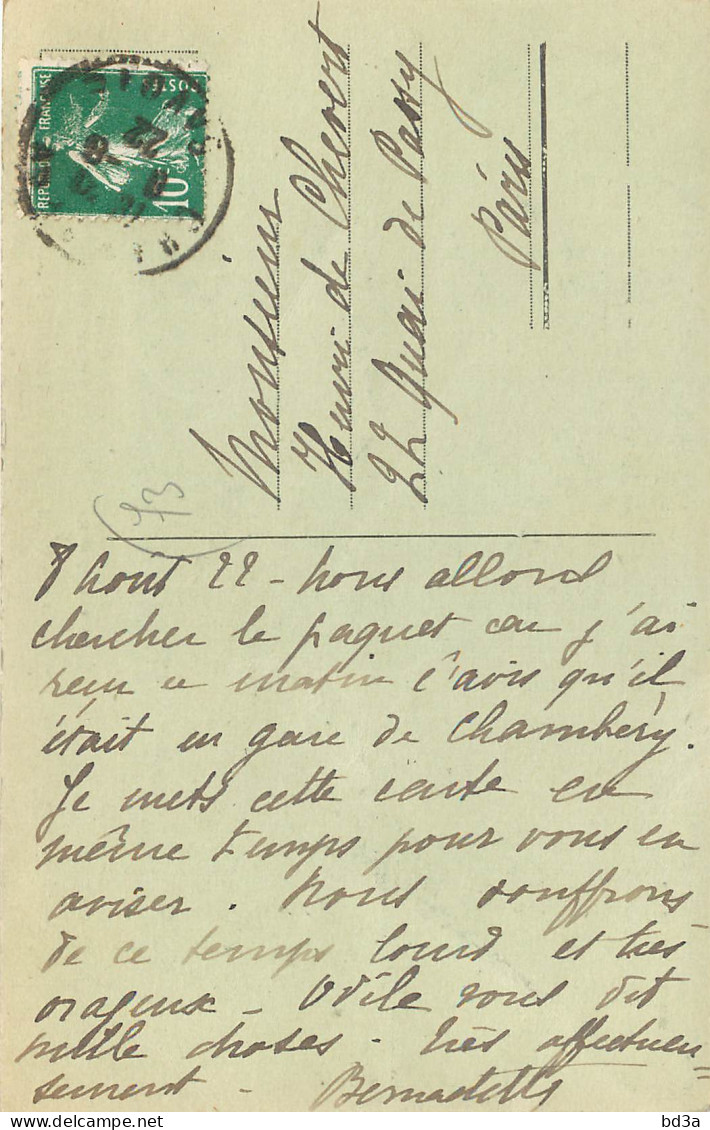 REPUBLIQUE FRANÇAISE
POSTES
10
22
Monsieur
Henri de Chevert
22 Quai de Passy
Paris
73
8 Août 22 - Nous allons
chercher le paquet car j'ai
reçu ce matin l'avis qu'il
était en gare de Chambéry.
Je mets cette carte en
même temps pour vous en
aviser. Nous souffrons
de ce temps lourd et très
orageux - Odile vous dit
mille choses. très affectueu=
sement - Bernadette
bd3a
delcampe.net